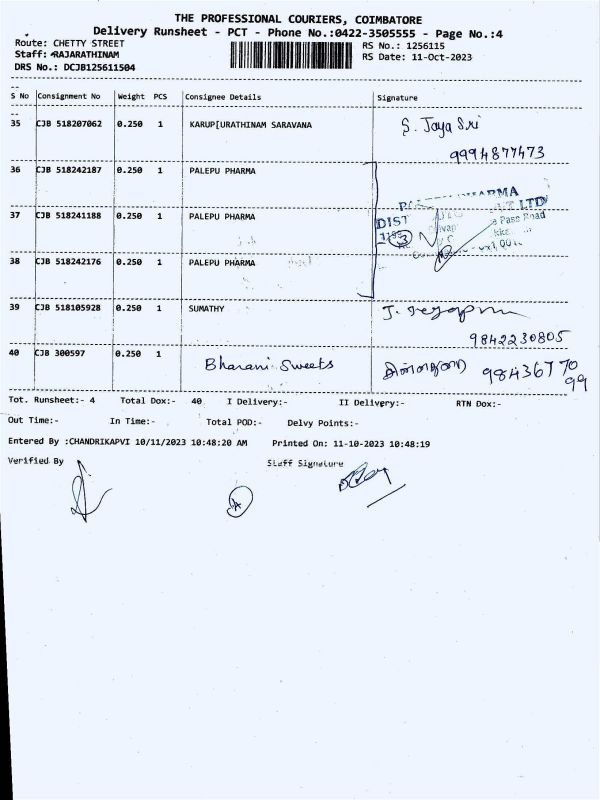 THE PROFESSIONAL COURIERS, COIMBATORE
Delivery Runsheet - PCT - Phone No.:0422-3505555 - Page No.:4
Route: CHETTY STREET
RS No.: 1256115
Staff: RAJARATHINAM
RS Date: 11-Oct-2023
DRS No.: DCJB125611504
S No Consignment No Weight PCS Consignee Details Signature
35 CJB 518207062 0.250 1 KARUP[URATHINAM SARAVANA S. Jaya Sri
9994877473
36 CJB 518242187 0.250 1 PALEPU PHARMA
37 CJB 518241188 0.250 1 PALEPU PHARMA
38 CJB 518242176 0.250 1 PALEPU PHARMA
DIST
LTD
Pass Road
3
39 CJB 518105928 0.250 1 SUMATHY
9842230805
40 CJB 300597 0.250 1 Bharani Sweets 98436770
99
Tot. Runsheet:- 4 Total Dox:- 40 I Delivery:- II Delivery:- RTN Dox:-
Out Time:- In Time:- Total POD:- Delvy Points:-
Entered By :CHANDRIKAPVI 10/11/2023 10:48:20 AM Printed On: 11-10-2023 10:48:19
Verified By Staff Signature